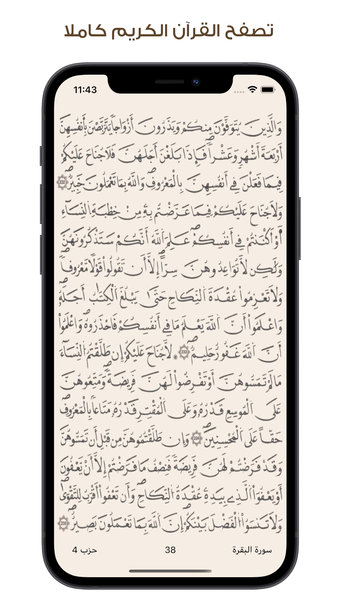 تصفح القرآن الكريم كاملا
11:43
وَالَّذِينَ يُتَوَفَّوْنَ مِنكُمْ وَيَذَرُونَ أَزْوَاجًا يَتَرَبَّصْنَ بِأَنفُسِهِنَّ
أَرْبَعَةَ أَشْهُرٍ وَعَشْرًا فَإِذَا بَلَغْنَ أَجَلَهُنَّ فَلَا جُنَاحَ عَلَيْكُمْ
فِيمَا فَعَلْنَ فِي أَنفُسِهِنَّ بِالْمَعْرُوفِ وَاللَّهُ بِمَا تَعْمَلُونَ خَبِيرٌ
وَلَا جُنَاحَ عَلَيْكُمْ فِيمَا عَرَّضْتُم بِهِ مِنْ خِطْبَةِ النِّسَاءِ
أَوْ أَكْنَنتُمْ فِي أَنفُسِكُمْ عَلِمَ اللَّهُ أَنَّكُمْ سَتَذْكُرُونَهُنَّ
وَلَٰكِن لَّا تُوَاعِدُوهُنَّ سِرًّا إِلَّا أَن تَقُولُوا قَوْلًا مَّعْرُوفًا
وَلَا تَعْزِمُوا عُقْدَةَ النِّكَاحِ حَتَّىٰ يَبْلُغَ الْكِتَابُ أَجَلَهُ
وَاعْلَمُوا أَنَّ اللَّهَ يَعْلَمُ مَا فِي أَنفُسِكُمْ فَاحْذَرُوهُ وَاعْلَمُوا
أَنَّ اللَّهَ غَفُورٌ حَلِيمٌ لَّا جُنَاحَ عَلَيْكُمْ إِن طَلَّقْتُمُ النِّسَاءَ
مَا لَمْ تَمَسُّوهُنَّ أَوْ تَفْرِضُوا لَهُنَّ فَرِيضَةً وَمَتِّعُوهُنَّ
عَلَى الْمُوسِعِ قَدَرُهُ وَعَلَى الْمُقْتِرِ قَدَرُهُ مَتَاعًا بِالْمَعْرُوفِ
حَقًّا عَلَى الْمُحْسِنِينَ وَإِن طَلَّقْتُمُوهُنَّ مِن قَبْلِ أَن تَمَسُّوهُنَّ
وَقَدْ فَرَضْتُمْ لَهُنَّ فَرِيضَةً فَنِصْفُ مَا فَرَضْتُمْ إِلَّا أَن يَعْفُونَ
أَوْ يَعْفُوَ الَّذِي بِيَدِهِ عُقْدَةُ النِّكَاحِ وَأَن تَعْفُوا أَقْرَبُ لِلتَّقْوَىٰ
وَلَا تَنسَوُا الْفَضْلَ بَيْنَكُمْ إِنَّ اللَّهَ بِمَا تَعْمَلُونَ بَصِيرٌ
سورة البقرة 38 حزب 4